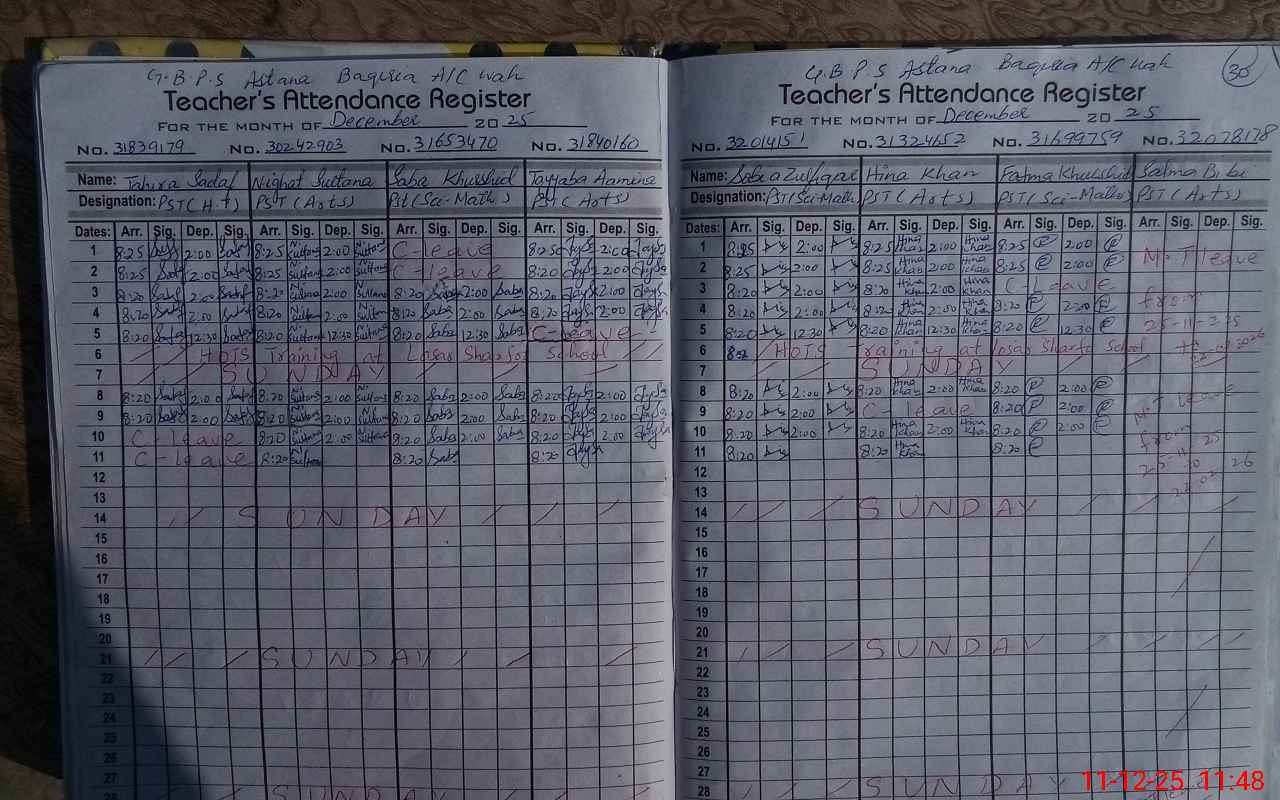 G.B.P.S Astana Baquia A/C wah
Teacher's Attendance Register
FOR THE MONTH OF December 20 25
No. 31839179 No. 30242903 No. 31653470 No. 31840160
Name: Tahira Sadaf Nighat Sultana Saba Khurshid Tayyaba Aamina
Designation: PST (H.t) PST (Arts) Pst (Sci-Math) PST (Arts)
Dates: Arr. Sig. Dep. Sig. Arr. Sig. Dep. Sig. Arr. Sig. Dep. Sig. Arr. Sig. Dep. Sig.
1 8:25 2:00 8:25 Sultana 2:00 Sultana C-leave 8:25 2:00
2 8:25 2:00 8:25 Sultana 2:00 Sultana C-leave 8:20 2:00
3 8:20 Sadaf 2:00 Sadaf 8:20 Sultana 2:00 Sultana 8:20 Saba 2:00 Saba 8:20 2:00
4 8:20 Sadaf 2:00 Sadaf 8:20 Sultana 2:00 Sultana 8:20 Saba 2:00 Saba 8:20 2:00
5 8:20 Sadaf 12:30 Sadaf 8:20 Sultana 12:30 Sultana 8:20 Saba 12:30 Saba C-leave
6 HOTS Training at Losar Sharfo School
7 SUNDAY
8 8:20 Sadaf 2:00 Sadaf 8:20 Sultana 2:00 Sultana 8:20 Saba 2:00 Saba 8:20 2:00
9 8:20 Sadaf 2:00 Sadaf 8:20 Sultana 2:00 Sultana 8:20 Saba 2:00 Saba 8:20 2:00
10 C-leave 8:20 Sultana 2:00 Sultana 8:20 Saba 2:00 Saba 8:20 2:00
11 C-leave 8:20 Sultana 8:20 Saba 8:20
12
13
14 SUNDAY
15
16
17
18
19
20
21 SUNDAY
22
23
24
25
26
27
28 SUNDAY
G.B.P.S Astana Baquia A/C wah
30
Teacher's Attendance Register
FOR THE MONTH OF December 20 25
No. 32014151 No. 31324652 No. 31699759 No. 32078178
Name: Sabra Zulfiqar Hina Khan Fatma Khurshid Salma Bibi
Designation: PST (Sci-Math) PST (Arts) PST (Sci-Maths) PST (Arts)
Dates: Arr. Sig. Dep. Sig. Arr. Sig. Dep. Sig. Arr. Sig. Dep. Sig. Arr. Sig. Dep. Sig.
1 8:25 2:00 8:25 Hina Khan 2:00 Hina Khan 8:25 2:00 M.T leave
2 8:25 2:00 8:25 Hina Khan 2:00 Hina Khan 8:25 2:00
3 8:20 2:00 8:20 Hina Khan 2:00 Hina Khan C-Leave from
4 8:20 2:00 8:20 Hina Khan 2:00 Hina Khan 8:20 2:00
5 8:20 12:30 8:20 Hina Khan 12:30 Hina Khan 8:20 12:30
6 HOTS Training at losar Sharfo School to
7 SUNDAY
8 8:20 2:00 8:20 Hina Khan 2:00 Hina Khan 8:20 2:00
9 8:20 2:00 C-leave 8:20 2:00 M.T leave
10 8:20 2:00 8:20 Hina Khan 2:00 Hina Khan 8:20 2:00 from
11 8:20 8:20 Hina Khan 8:20
12
13
14 SUNDAY
15
16
17
18
19
20
21 SUNDAY
22
23
24
25
26
27
28 SUNDAY
11-12-25 11:48